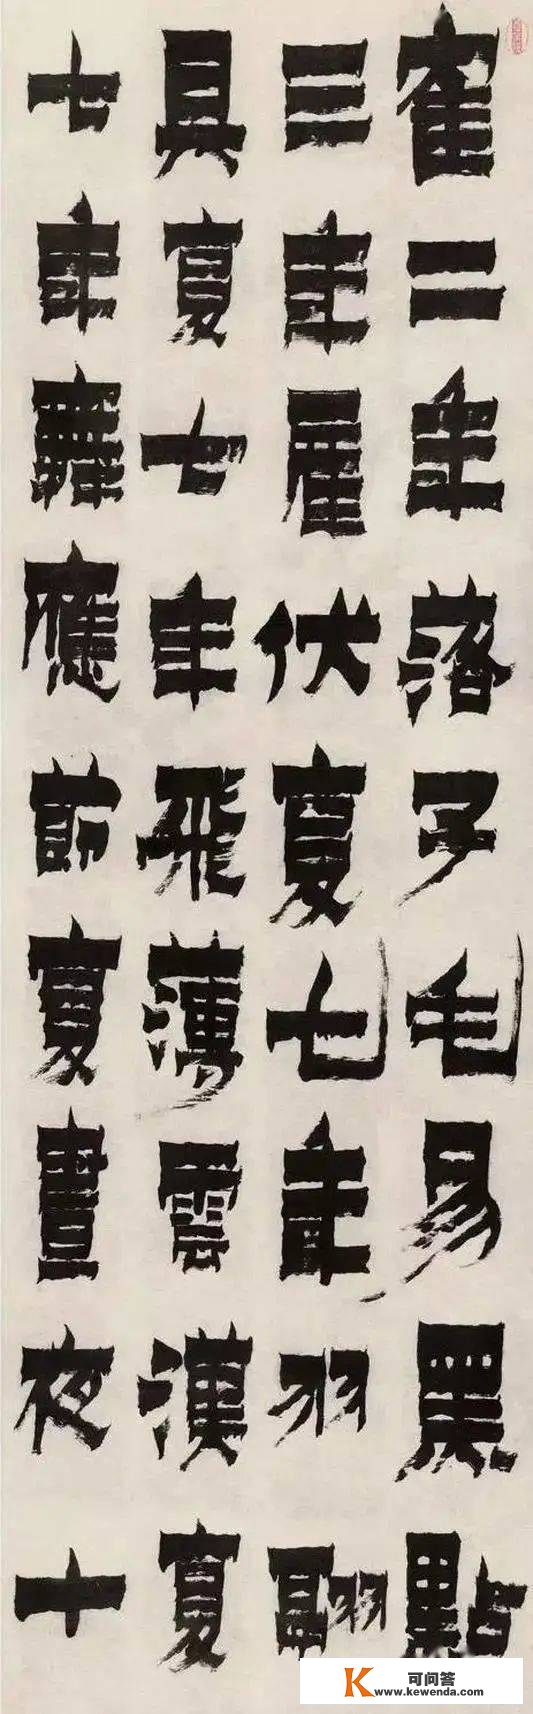 隺二年落子毛易黑點
三年產伏复七年羽翮
具复七年飛薄雲漢复
七年舞應節复晝夜十
K 可问答
www.kewenda.com